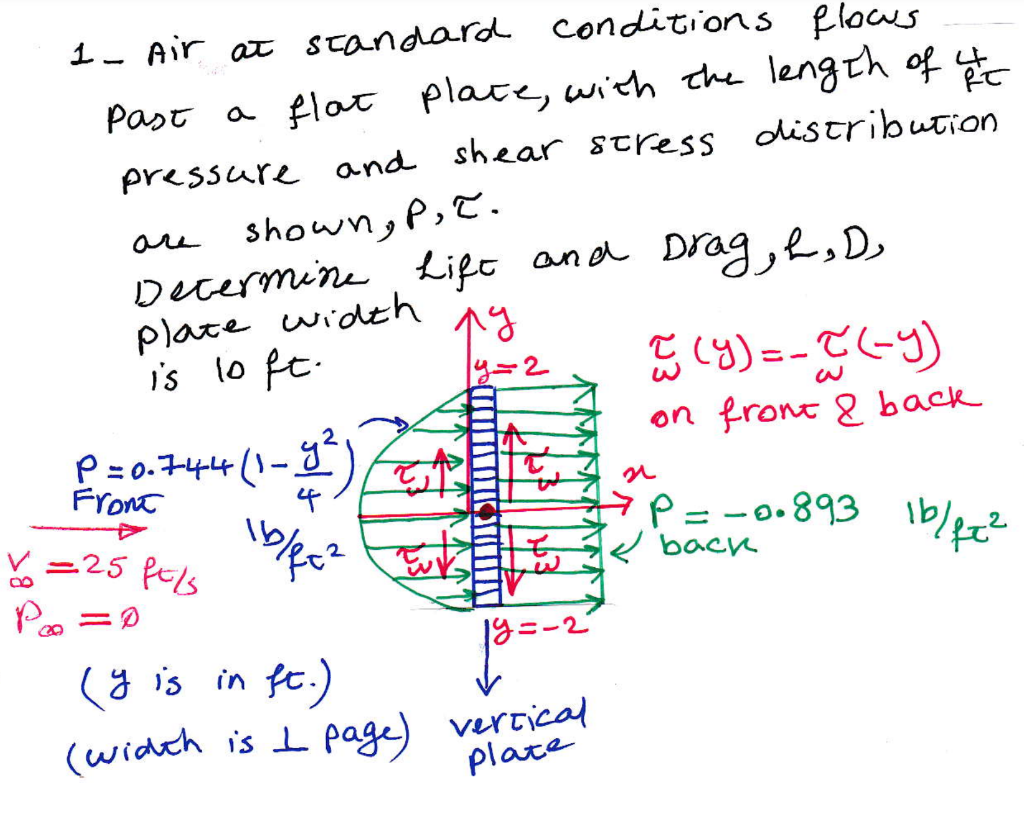 1- Air at standard conditions flows
past a flat plate, with the length of 4 ft
pressure and shear stress distribution
are shown, P, τ.
Determine Lift and Drag, L, D,
plate width
is 10 ft.
y
y=2
τw(y) = -τw(-y)
on front & back
P = 0.744(1-y²/4)
Front
lb/ft²
τw
τw
x
P = -0.893 lb/ft²
back
V∞ = 25 ft/s
P∞ = 0
τw
τw
y=-2
(y is in ft.)
(width is ⊥ page)
vertical
plate